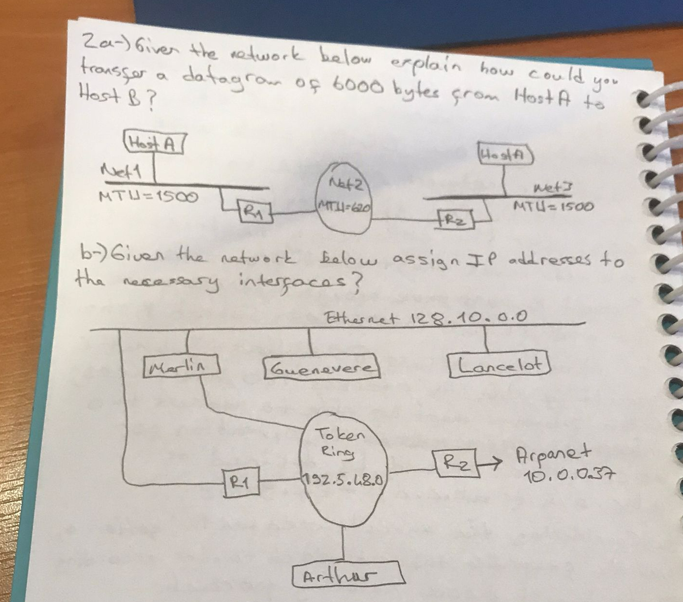 2a-) Given the network below explain how could you
transfer a datagram of 6000 bytes from Host A to
Host B?
Host A
Host A
Net1
Net2
Net3
MTU=1500
R1
MTU=620
R2
MTU=1500
b-) Given the network below assign IP addresses to
the necessary interfaces?
Ethernet 128.10.0.0
Merlin
Guenevere
Lancelot
Token
Ring
192.5.48.0
R1
R2
Arpanet
10.0.0.37
Arthur